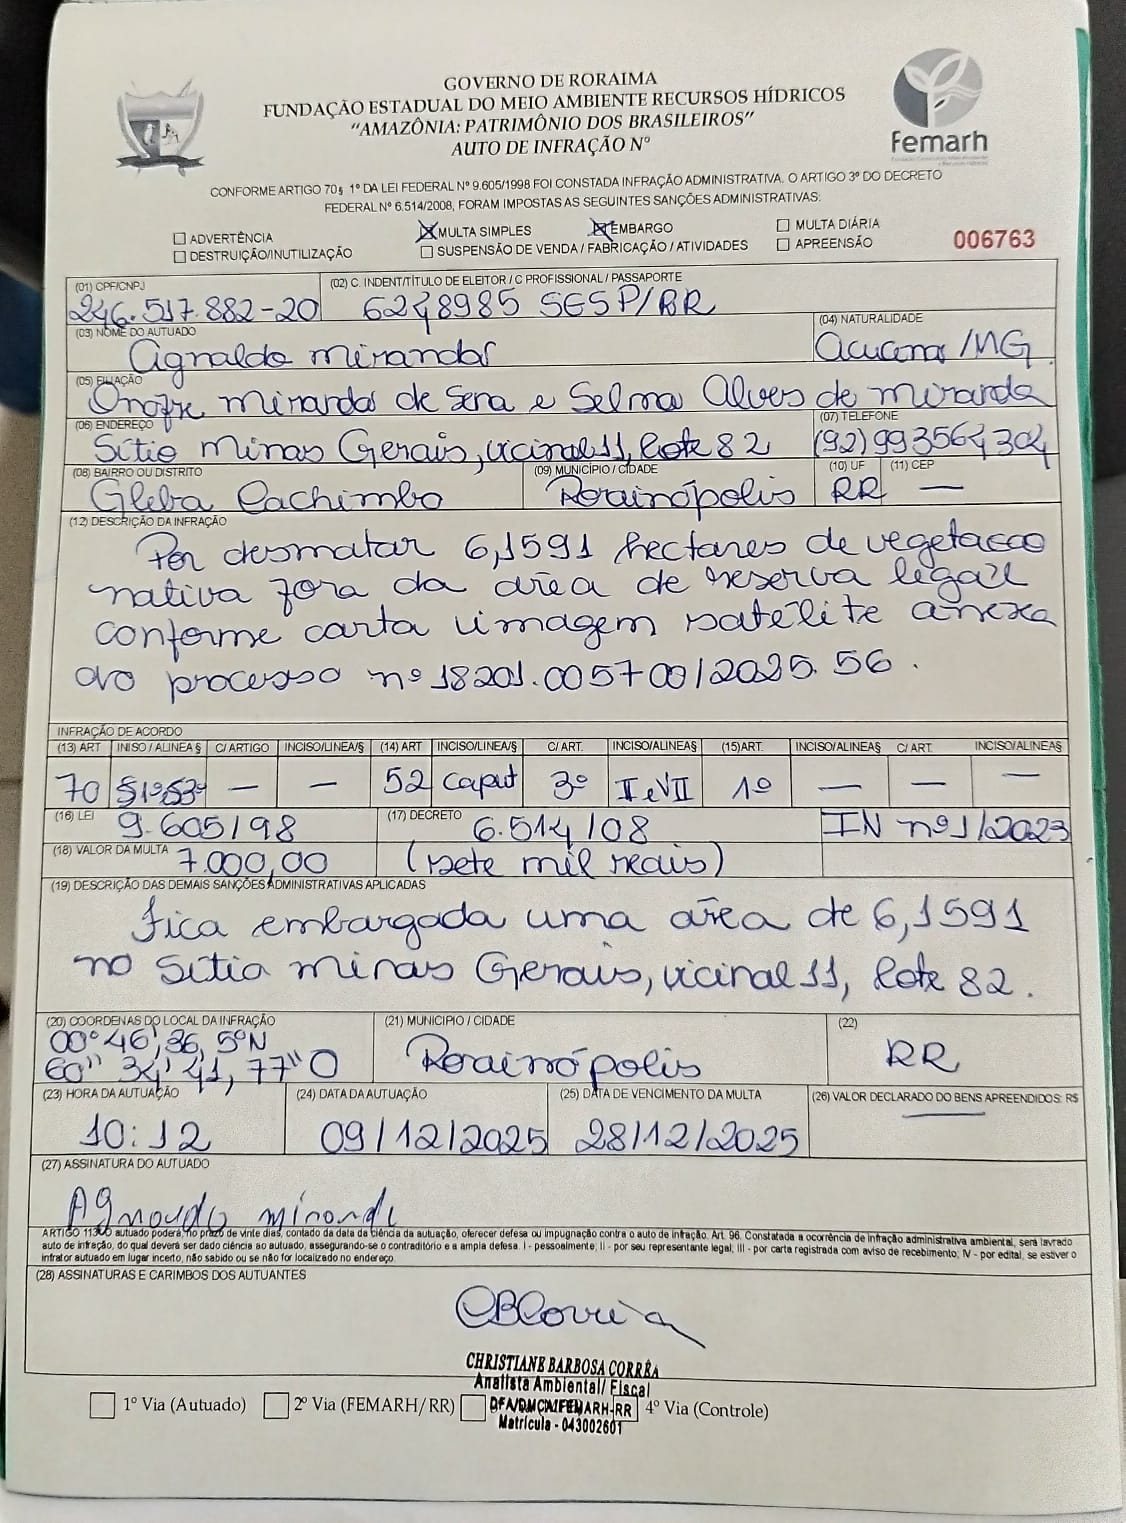 GOVERNO DE RORAIMA
FUNDAÇÃO ESTADUAL DO MEIO AMBIENTE RECURSOS HÍDRICOS
"AMAZÔNIA: PATRIMÔNIO DOS BRASILEIROS"
AUTO DE INFRAÇÃO Nº
Femarh
CONFORME ARTIGO 70§ 1º DA LEI FEDERAL Nº 9.605/1998 FOI CONSTADA INFRAÇÃO ADMINISTRATIVA. O ARTIGO 3º DO DECRETO
FEDERAL Nº 6.514/2008, FORAM IMPOSTAS AS SEGUINTES SANÇÕES ADMINISTRATIVAS:
ADVERTÊNCIA MULTA SIMPLES EMBARGO MULTA DIÁRIA
DESTRUIÇÃO/INUTILIZAÇÃO SUSPENSÃO DE VENDA / FABRICAÇÃO / ATIVIDADES APREENSÃO
006763
(01) CPF/CNPJ (02) C. INDENT/TÍTULO DE ELEITOR / C PROFISSIONAL / PASSAPORTE
246.517.882-20 6248985 SESP/RR
(03) NOME DO AUTUADO (04) NATURALIDADE
Agnaldo Miranda Açucena/MG
(05) FILIAÇÃO
Onofre Miranda de Sena e Selma Alves de Miranda
(06) ENDEREÇO (07) TELEFONE
Sítio Minas Gerais, vicinal 11, lote 82 (92) 993564304
(08) BAIRRO OU DISTRITO (09) MUNICÍPIO / CIDADE (10) UF (11) CEP
Gleba Cachimbo Rorainópolis RR —
(12) DESCRIÇÃO DA INFRAÇÃO
Por desmatar 6,1591 hectares de vegetacao
nativa fora da área de reserva legal
conforme carta imagem satélite anexa
ao processo nº 18201.005700/2025.56.
INFRAÇÃO DE ACORDO
(13) ART INISO / ALINEA § C/ ARTIGO INCISO/LINEA/§ (14) ART INCISO/LINEA/§ C/ ART. INCISO/ALINEA§ (15)ART. INCISO/ALINEA§ C/ ART. INCISO/ALINEA§
70 §1º§3º — — 52 caput 3º II e VII 1º — — —
(16) LEI (17) DECRETO
9.605/98 6.514/08 IN nº1/2023
(18) VALOR DA MULTA
7.000,00 (sete mil reais)
(19) DESCRIÇÃO DAS DEMAIS SANÇÕES ADMINISTRATIVAS APLICADAS
Fica embargada uma área de 6,1591
no Sítio Minas Gerais, vicinal 11, lote 82.
(20) COORDENAS DO LOCAL DA INFRAÇÃO (21) MUNICIPIO / CIDADE (22)
00° 46' 36, 5"N
60" 34' 41, 77" O Rorainópolis RR
(23) HORA DA AUTUAÇÃO (24) DATA DA AUTUAÇÃO (25) DATA DE VENCIMENTO DA MULTA (26) VALOR DECLARADO DO BENS APREENDIDOS: R$
10:12 09/12/2025 28/12/2025 —
(27) ASSINATURA DO AUTUADO
Agnaldo miranda
ARTIGO 113 O autuado poderá, no prazo de vinte dias, contado da data da ciência da autuação, oferecer defesa ou impugnação contra o auto de infração. Art. 96. Constatada a ocorrência de infração administrativa ambiental, será lavrado
auto de infração, do qual deverá ser dado ciência ao autuado, assegurando-se o contraditório e a ampla defesa. I - pessoalmente; II - por seu representante legal; III - por carta registrada com aviso de recebimento; IV - por edital, se estiver o
infrator autuado em lugar incerto, não sabido ou se não for localizado no endereço.
(28) ASSINATURAS E CARIMBOS DOS AUTUANTES
CHRISTIANE BARBOSA CORRÊA
Analista Ambiental/ Fiscal
DFA/DMCA/FEMARH-RR
Matrícula - 043002601
1º Via (Autuado) 2º Via (FEMARH/RR) 4º Via (Controle)